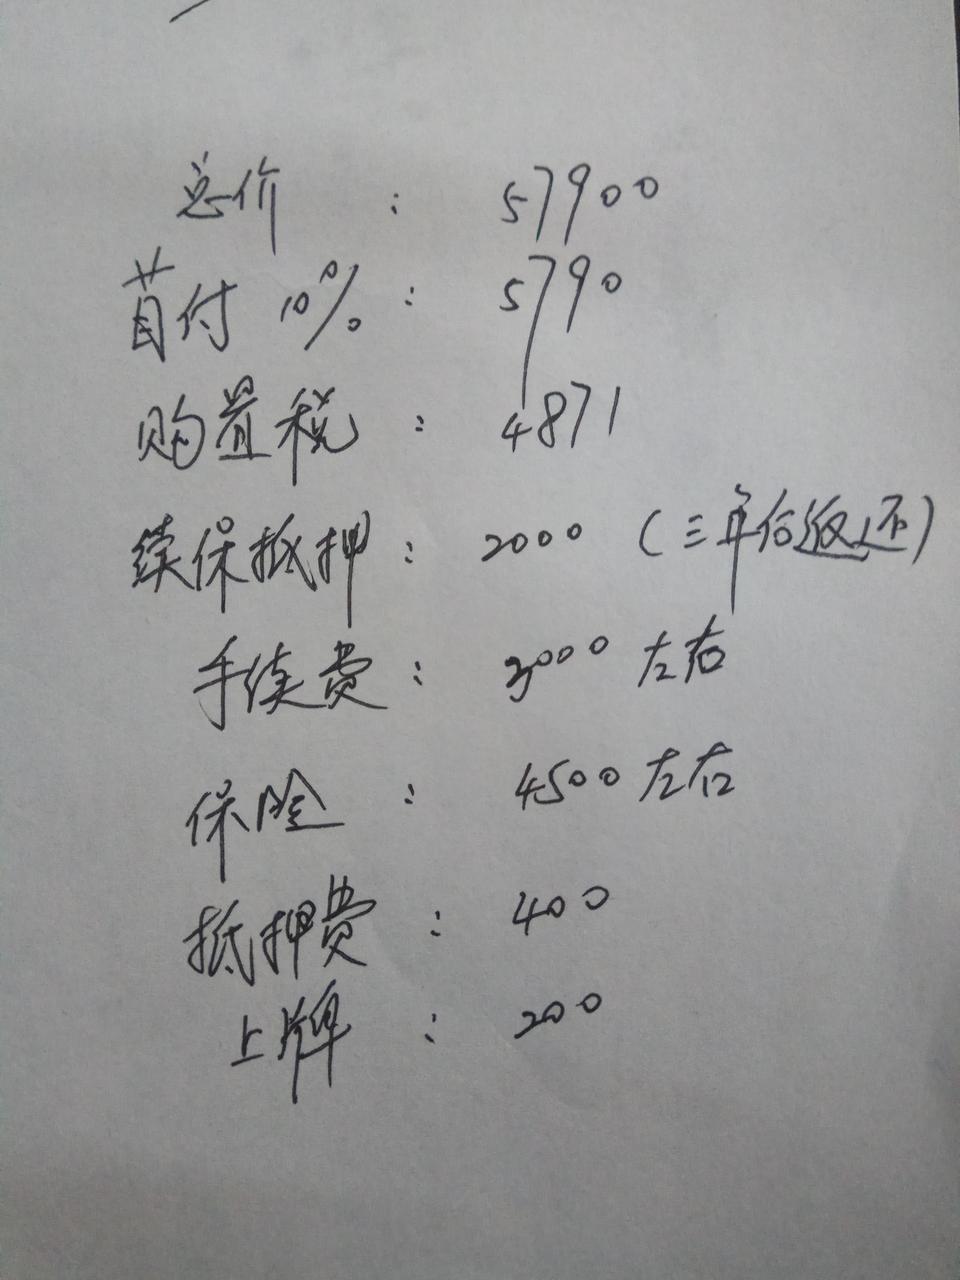 总价 : 57900
首付 10% : 5790
购置税 : 4871
续保抵押 : 2000 (三年后返还)
手续费 : 3000 左右
保险 : 4500 左右
抵押费 : 400
上牌 : 200